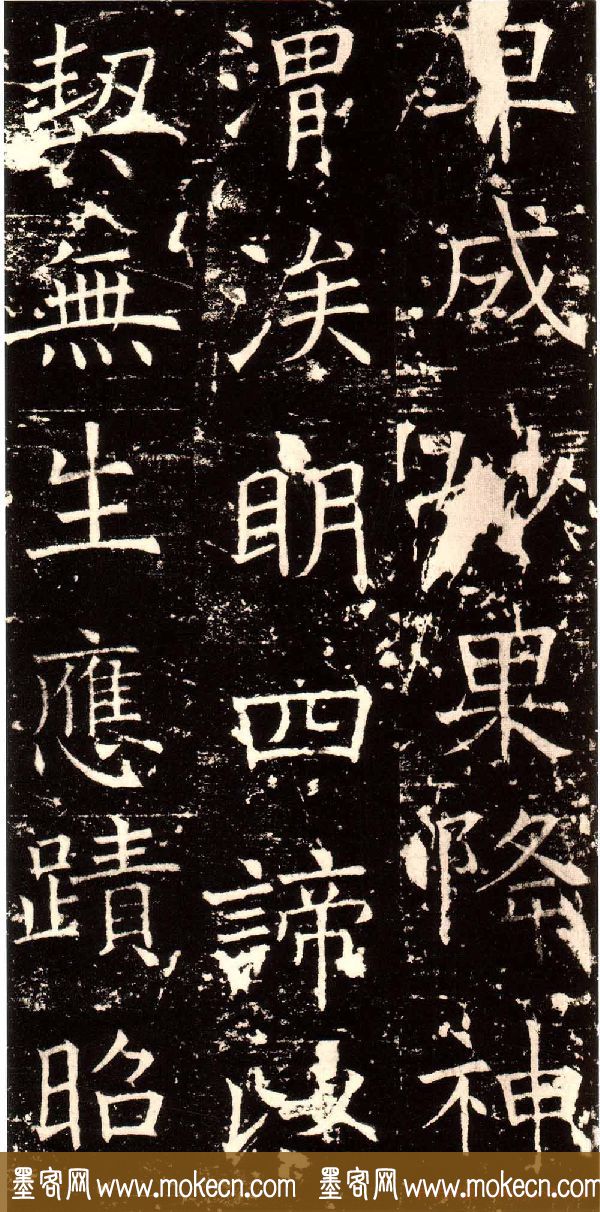 早成妙果降神
渭涘眀四諦以
契無生應蹟昭
墨客网 www.mokecn.com 墨客网 www.mokecn.com